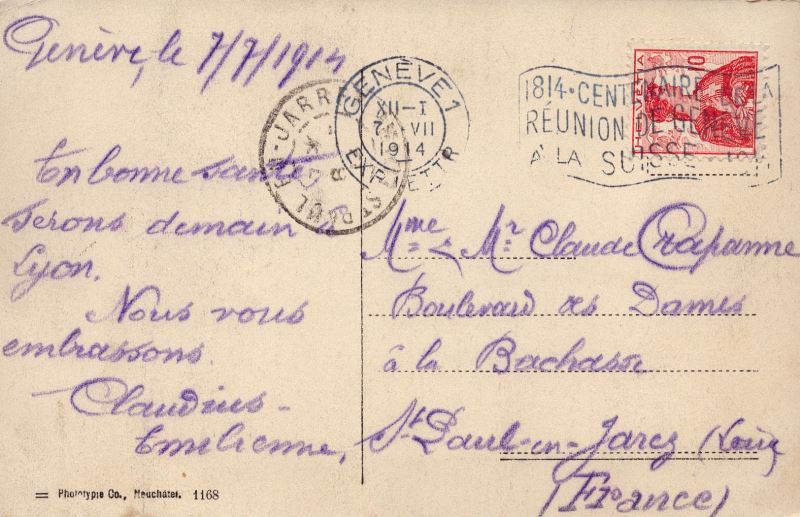 Genève, le 7/7/1914
En bonne santé
serons demain à
Lyon.
Nous vous
embrassons.
Claudius -
Emilienne,
= Phototypie Co., Neuchâtel. 1168
GENÈVE 1
XII-I
7 VII
1914
EXP. LETTR
ST PAUL-EN-JARR
8
1814 · CENTENAIRE
RÉUNION DE GENÈVE
A LA SUISSE
HELVETIA
Mme & Mr Claude Crapanne
Boulevard des Dames
à la Bachasse
St Paul-en-Jarez (Loire)
(France)